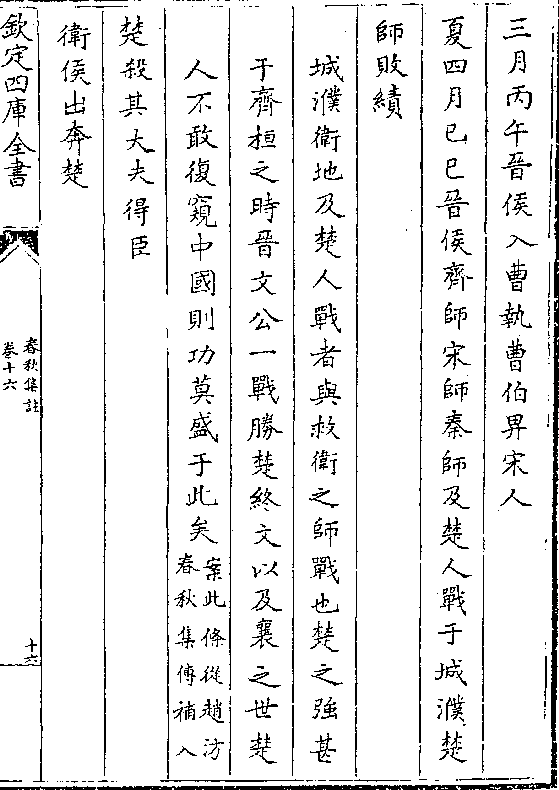 三月丙午晉侯入曹執曹伯畀宋人
夏四月己巳晉侯齊師宋師秦師及楚人戰于城濮楚
師敗績
城濮衛地及楚人戰者與救衛之師戰也楚之強甚
于齊桓之時晉文公一戰勝楚終文以及襄之世楚
人不敢復窺中國則功莫盛于此矣案此條從趙汸
春秋集傳補入
楚殺其大夫得臣
衛侯出奔楚
欽定四庫全書
春秋集註
卷十六
十六